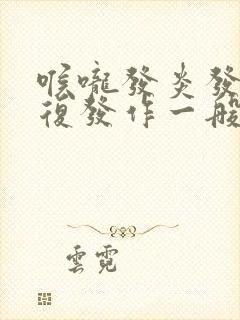 喉嚨發炎發
復發作一般
雲霓